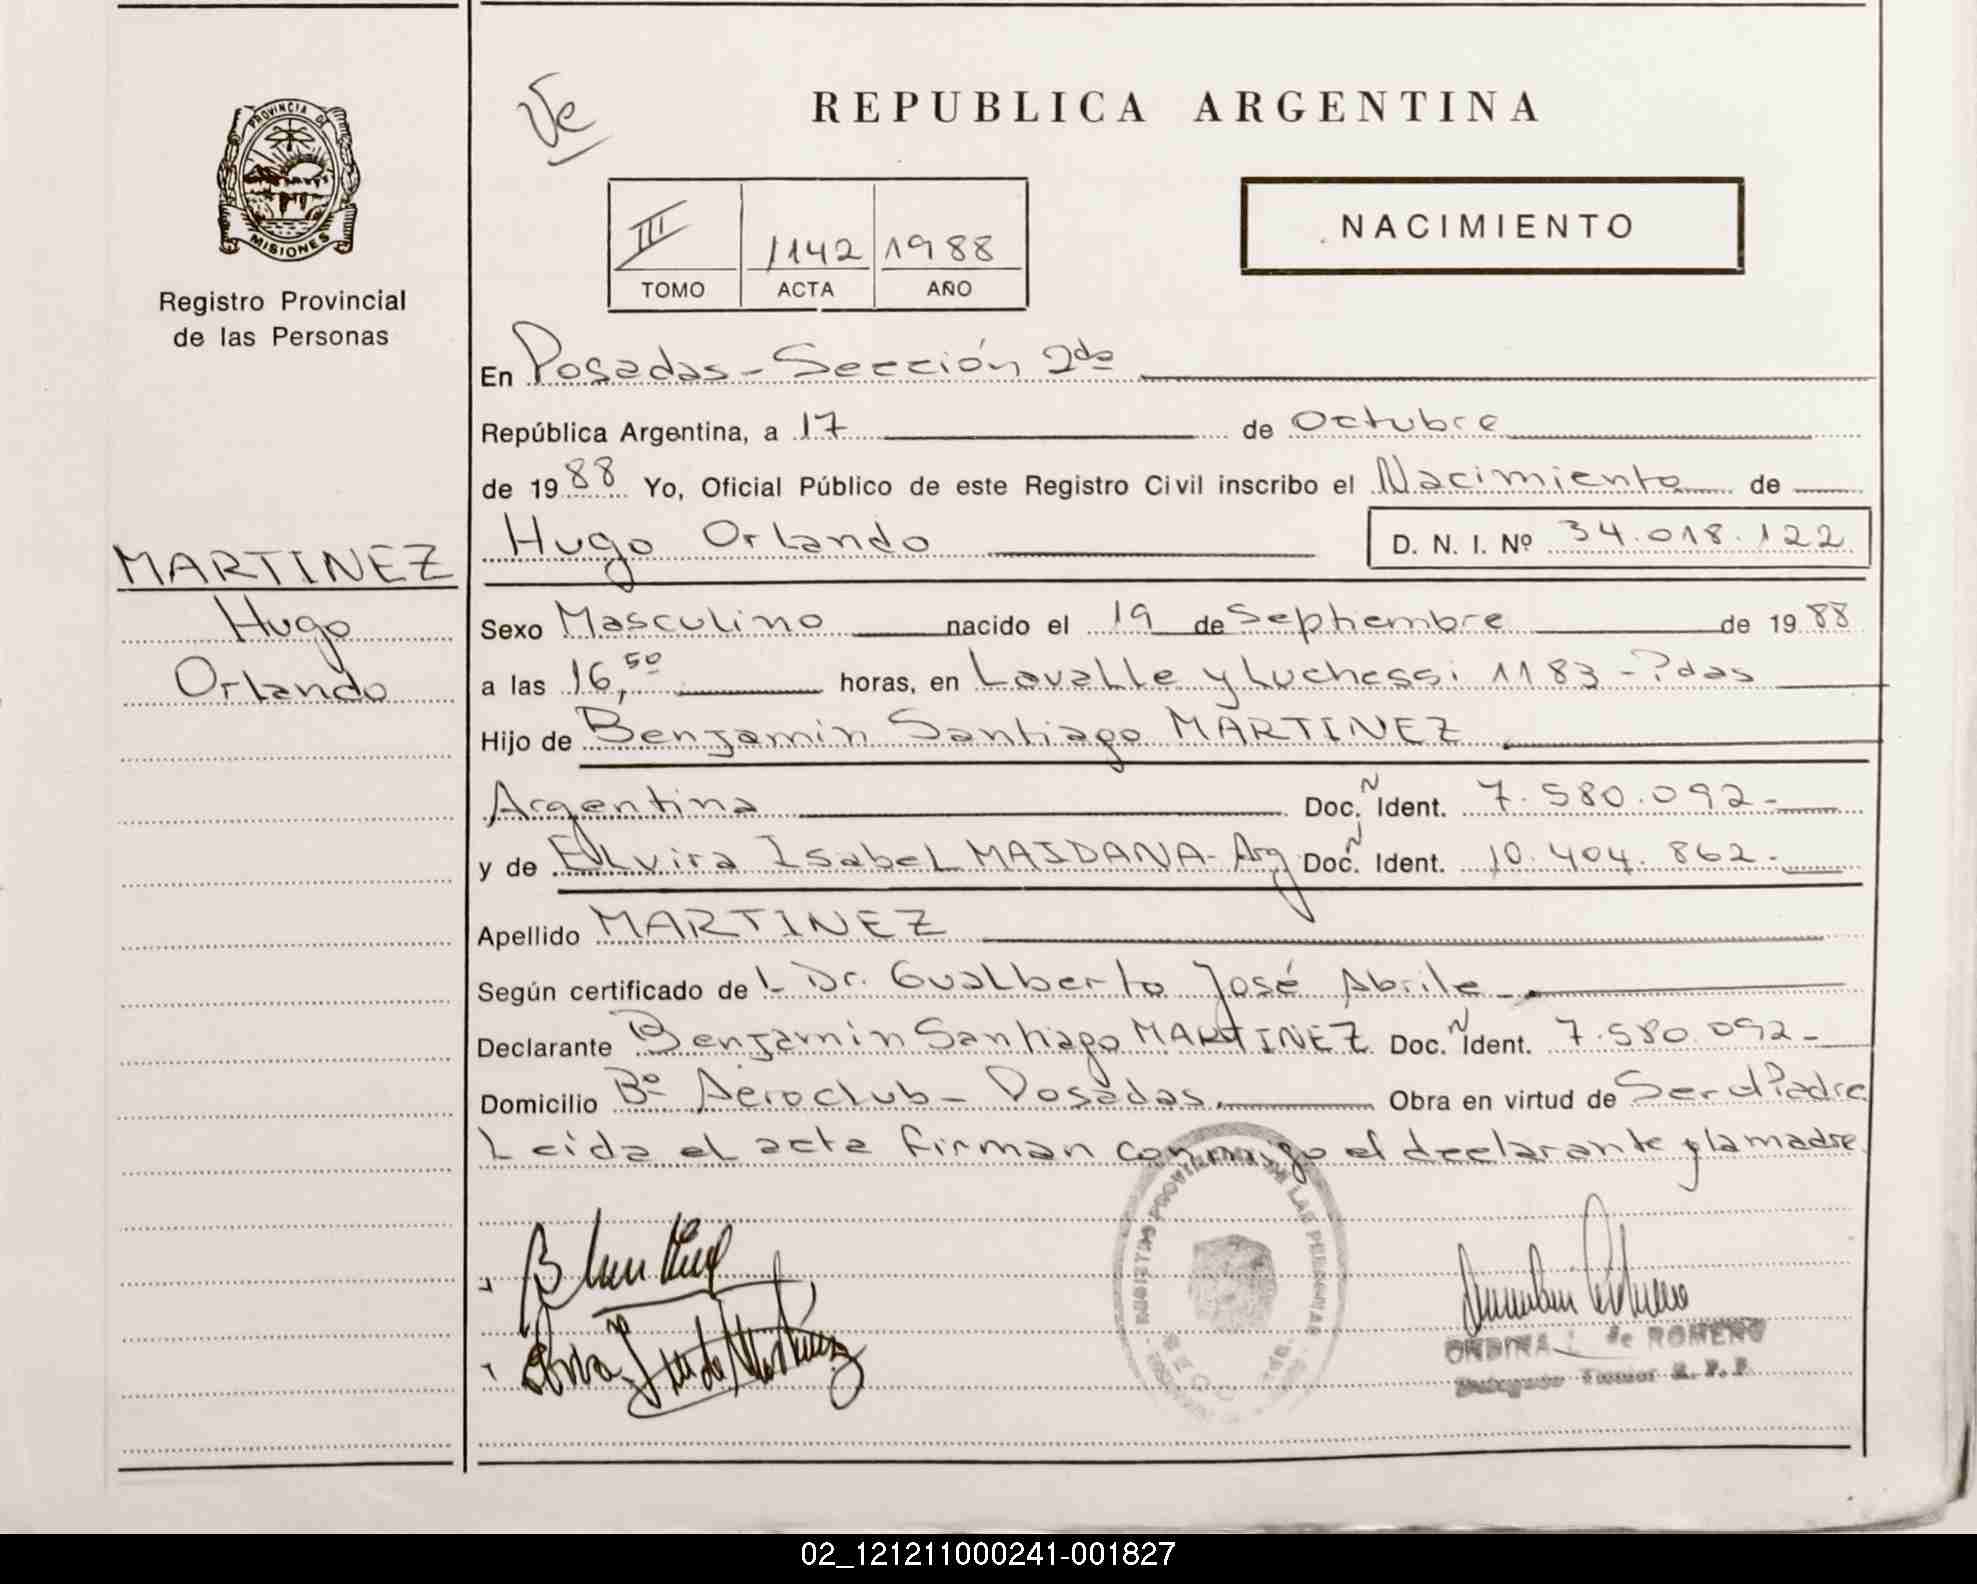 Ve
REPUBLICA ARGENTINA
PROVINCIA DE
MISIONES
Registro Provincial
de las Personas
III 1142 1988
TOMO ACTA AÑO
NACIMIENTO
En Posadas - Sección 2da
República Argentina, a 17 de Octubre
de 1988 Yo, Oficial Público de este Registro Civil inscribo el Nacimiento de
Hugo Orlando D. N. I. Nº 34.018.122
MARTINEZ
Hugo
Orlando
Sexo Masculino nacido el 19 de Septiembre de 1988
a las 16,50 horas, en Lavalle y Luchessi 1183 - Pdas
Hijo de Benjamin Santiago MARTINEZ
Argentina Doc. N Ident. 7.580.092-
y de Elvira Isabel MAIDANA - Arg Doc. N Ident. 10.404.862-
Apellido MARTINEZ
Según certificado del Dr. Gualberto José Abrile
Declarante Benjamin Santiago MARTINEZ Doc. N Ident. 7.580.092-
Domicilio Bº Aeroclub - Posadas. Obra en virtud de Ser el Padre
Leida el acta firman conmigo el declarante y la madre.
REGISTRO PROVINCIAL DE LAS PERSONAS
ONDINA L. de ROMERO
Delegado Titular R. P. P.
02_121211000241-001827